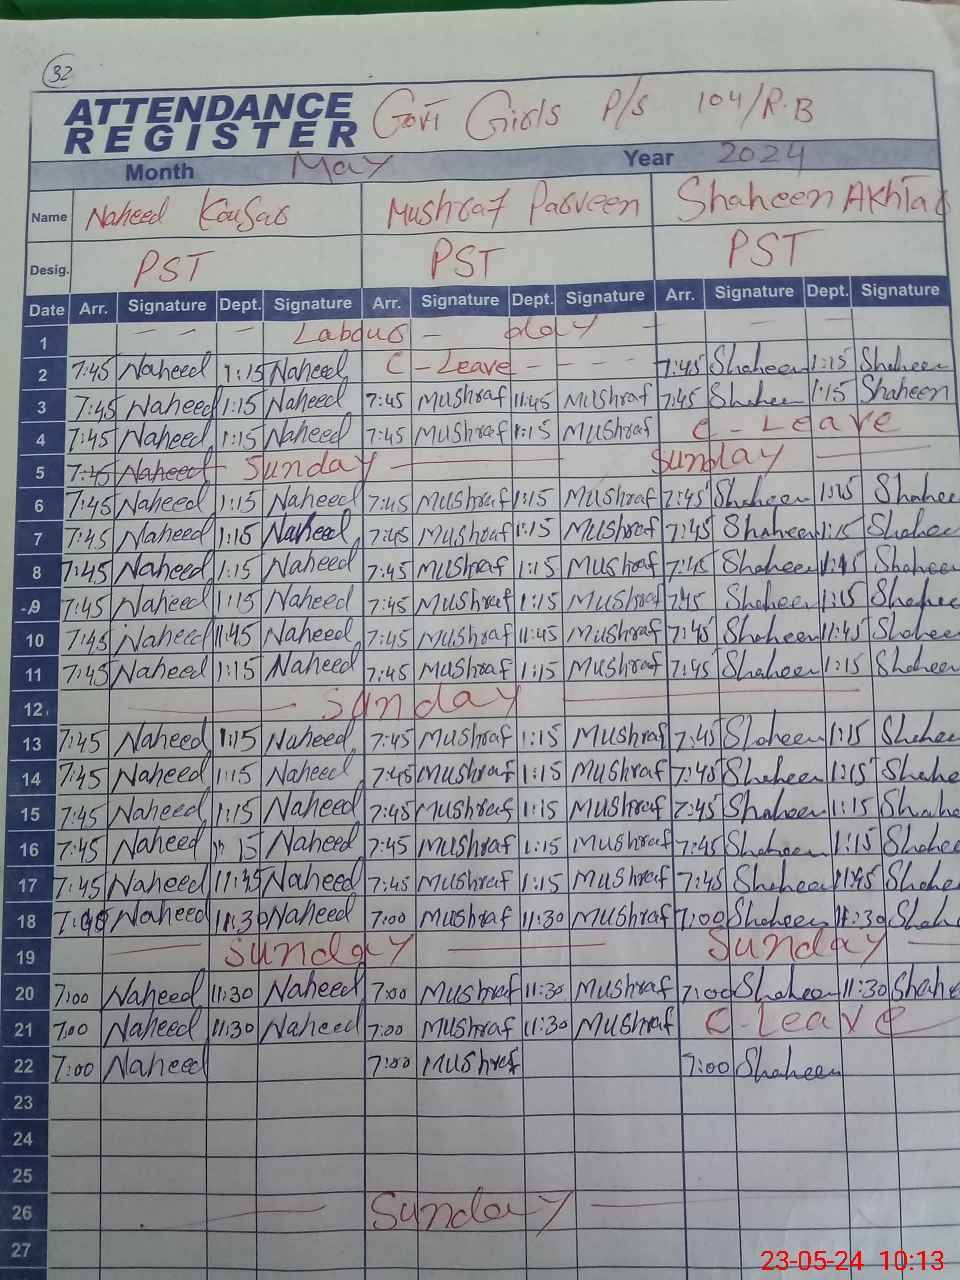 32
ATTENDANCE REGISTER Govt Girls P/S 104/R.B
Month May Year 2024
Name Naheed Kousar Mushraf Parveen Shaheen Akhtar
Desig. PST PST PST
Date Arr. Signature Dept. Signature Arr. Signature Dept. Signature Arr. Signature Dept. Signature
1 Labour day
2 7:45 Naheed 1:15 Naheed C-Leave 7:45 Shaheen 1:15 Shaheen
3 7:45 Naheed 1:15 Naheed 7:45 Mushraf 11:45 Mushraf 7:45 Shaheen 1:15 Shaheen
4 7:45 Naheed 1:15 Naheed 7:45 Mushraf 1:15 Mushraf C-Leave
5 7:45 Naheed Sunday Sunday
6 7:45 Naheed 1:15 Naheed 7:45 Mushraf 1:15 Mushraf 7:45 Shaheen 1:15 Shahee
7 7:45 Naheed 1:15 Naheed 7:45 Mushraf 1:15 Mushraf 7:45 Shaheen 1:15 Shahee
8 7:45 Naheed 1:15 Naheed 7:45 Mushraf 1:15 Mushraf 7:45 Shaheen Shahee
9 7:45 Naheed 1:15 Naheed 7:45 Mushraf 1:15 Mushraf 7:45 Shaheen 1:15 Shahee
10 7:45 Naheed 11:45 Naheed 7:45 Mushraf 11:45 Mushraf 7:45 Shaheen 11:45 Shahee
11 7:45 Naheed 1:15 Naheed 7:45 Mushraf 1:15 Mushraf 7:45 Shaheen 1:15 Shaheen
12 Sunday
13 7:45 Naheed 1:15 Naheed 7:45 Mushraf 1:15 Mushraf 7:45 Shaheen 1:15 Shahee
14 7:45 Naheed 1:15 Naheed 7:45 Mushraf 1:15 Mushraf 7:45 Shaheen 1:15 Shahe
15 7:45 Naheed 1:15 Naheed 7:45 Mushraf 1:15 Mushraf 7:45 Shaheen 1:15 Shahe
16 7:45 Naheed 15 Naheed 7:45 Mushraf 1:15 Mushraf 7:45 Shaheen 1:15 Shahee
17 7:45 Naheed 11:45 Naheed 7:45 Mushraf 1:15 Mushraf 7:45 Shaheen 11:45 Shahe
18 7:00 Naheed 11:30 Naheed 7:00 Mushraf 11:30 Mushraf 7:00 Shaheen 11:30 Shah
19 Sunday Sunday
20 7:00 Naheed 11:30 Naheed 7:00 Mushraf 11:30 Mushraf 7:00 Shaheen 11:30 Shahe
21 7:00 Naheed 11:30 Naheed 7:00 Mushraf 11:30 Mushraf C-Leave
22 7:00 Naheed 7:00 Mushraf 7:00 Shaheen
23
24
25
26 Sunday
27
23-05-24 10:13